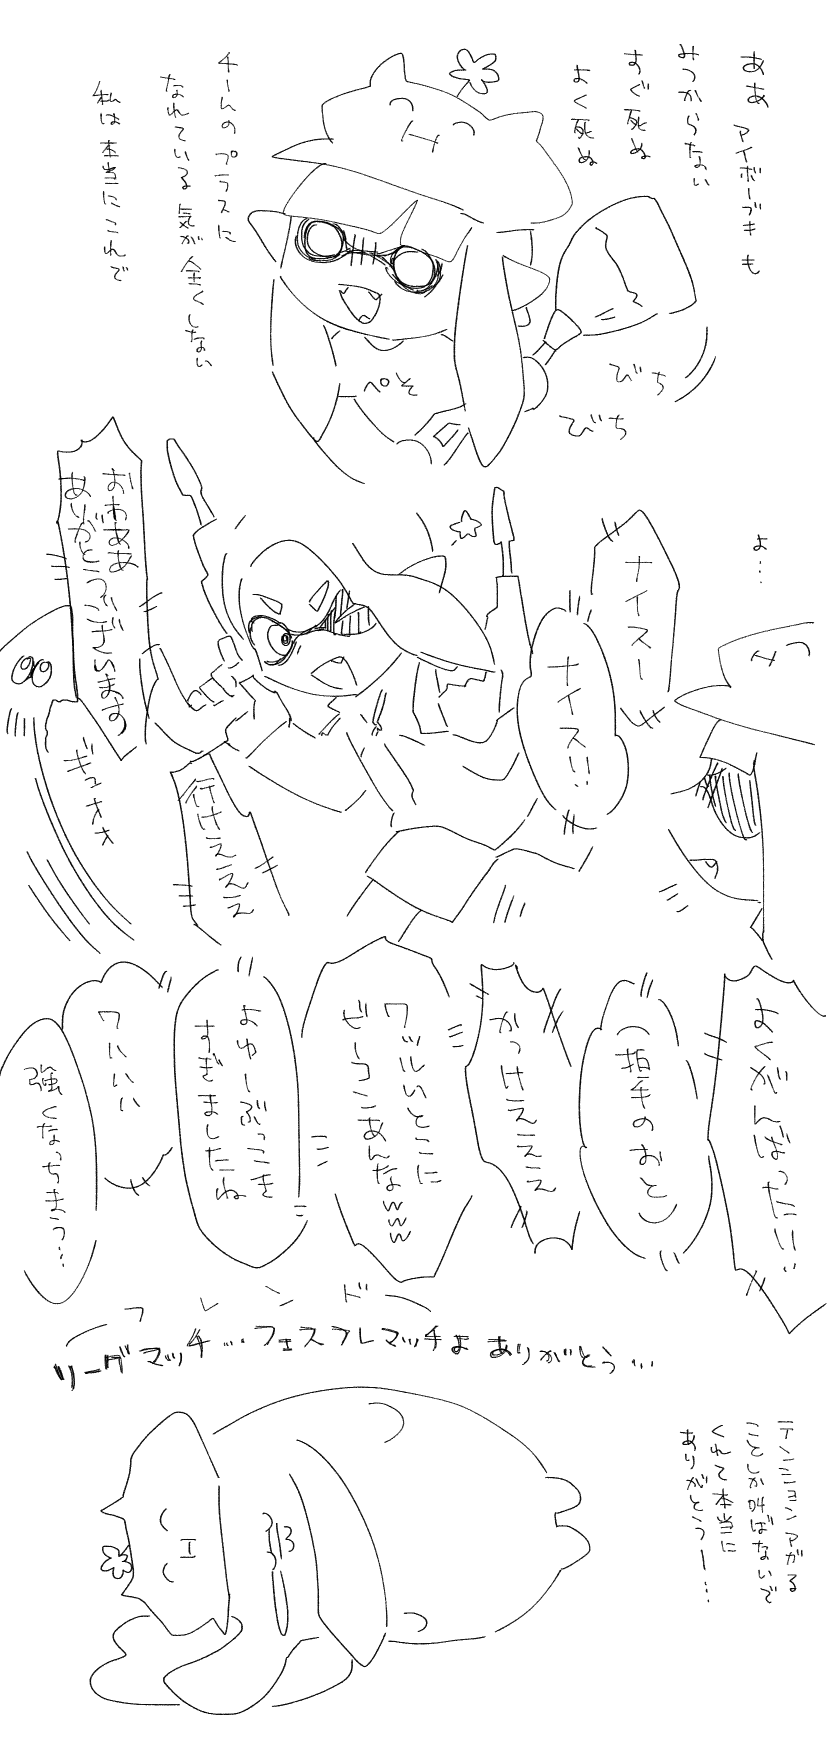 ああ アイボーブキも
みつからない
すぐ死ぬ
よく死ぬ
チームのプラスに
なれている気が全くしない
私は本当にこれで
ぺそ
びち
びち
よ…
ナイスー
ナイス!!
おわああ
ありがとうございます
ギュオオ
行けえええ
よくがんばったい!!
(拍手のおと)
かっけえええ
ワッルいとこに
ビーコンあんなwww
よゆーぶっこき
すぎましたね
ワハハハ
強くなっちまう…
フレンド
リーグマッチ…フェスフレマッチよ ありがとう…
テンションアがる
ことしか叫ばないで
くれて本当に
ありがとうー…